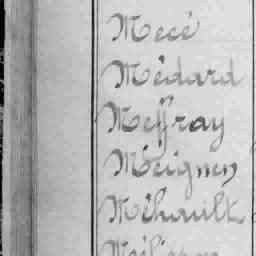 Mecé
Médard
Meffray
Meignen
Méhault